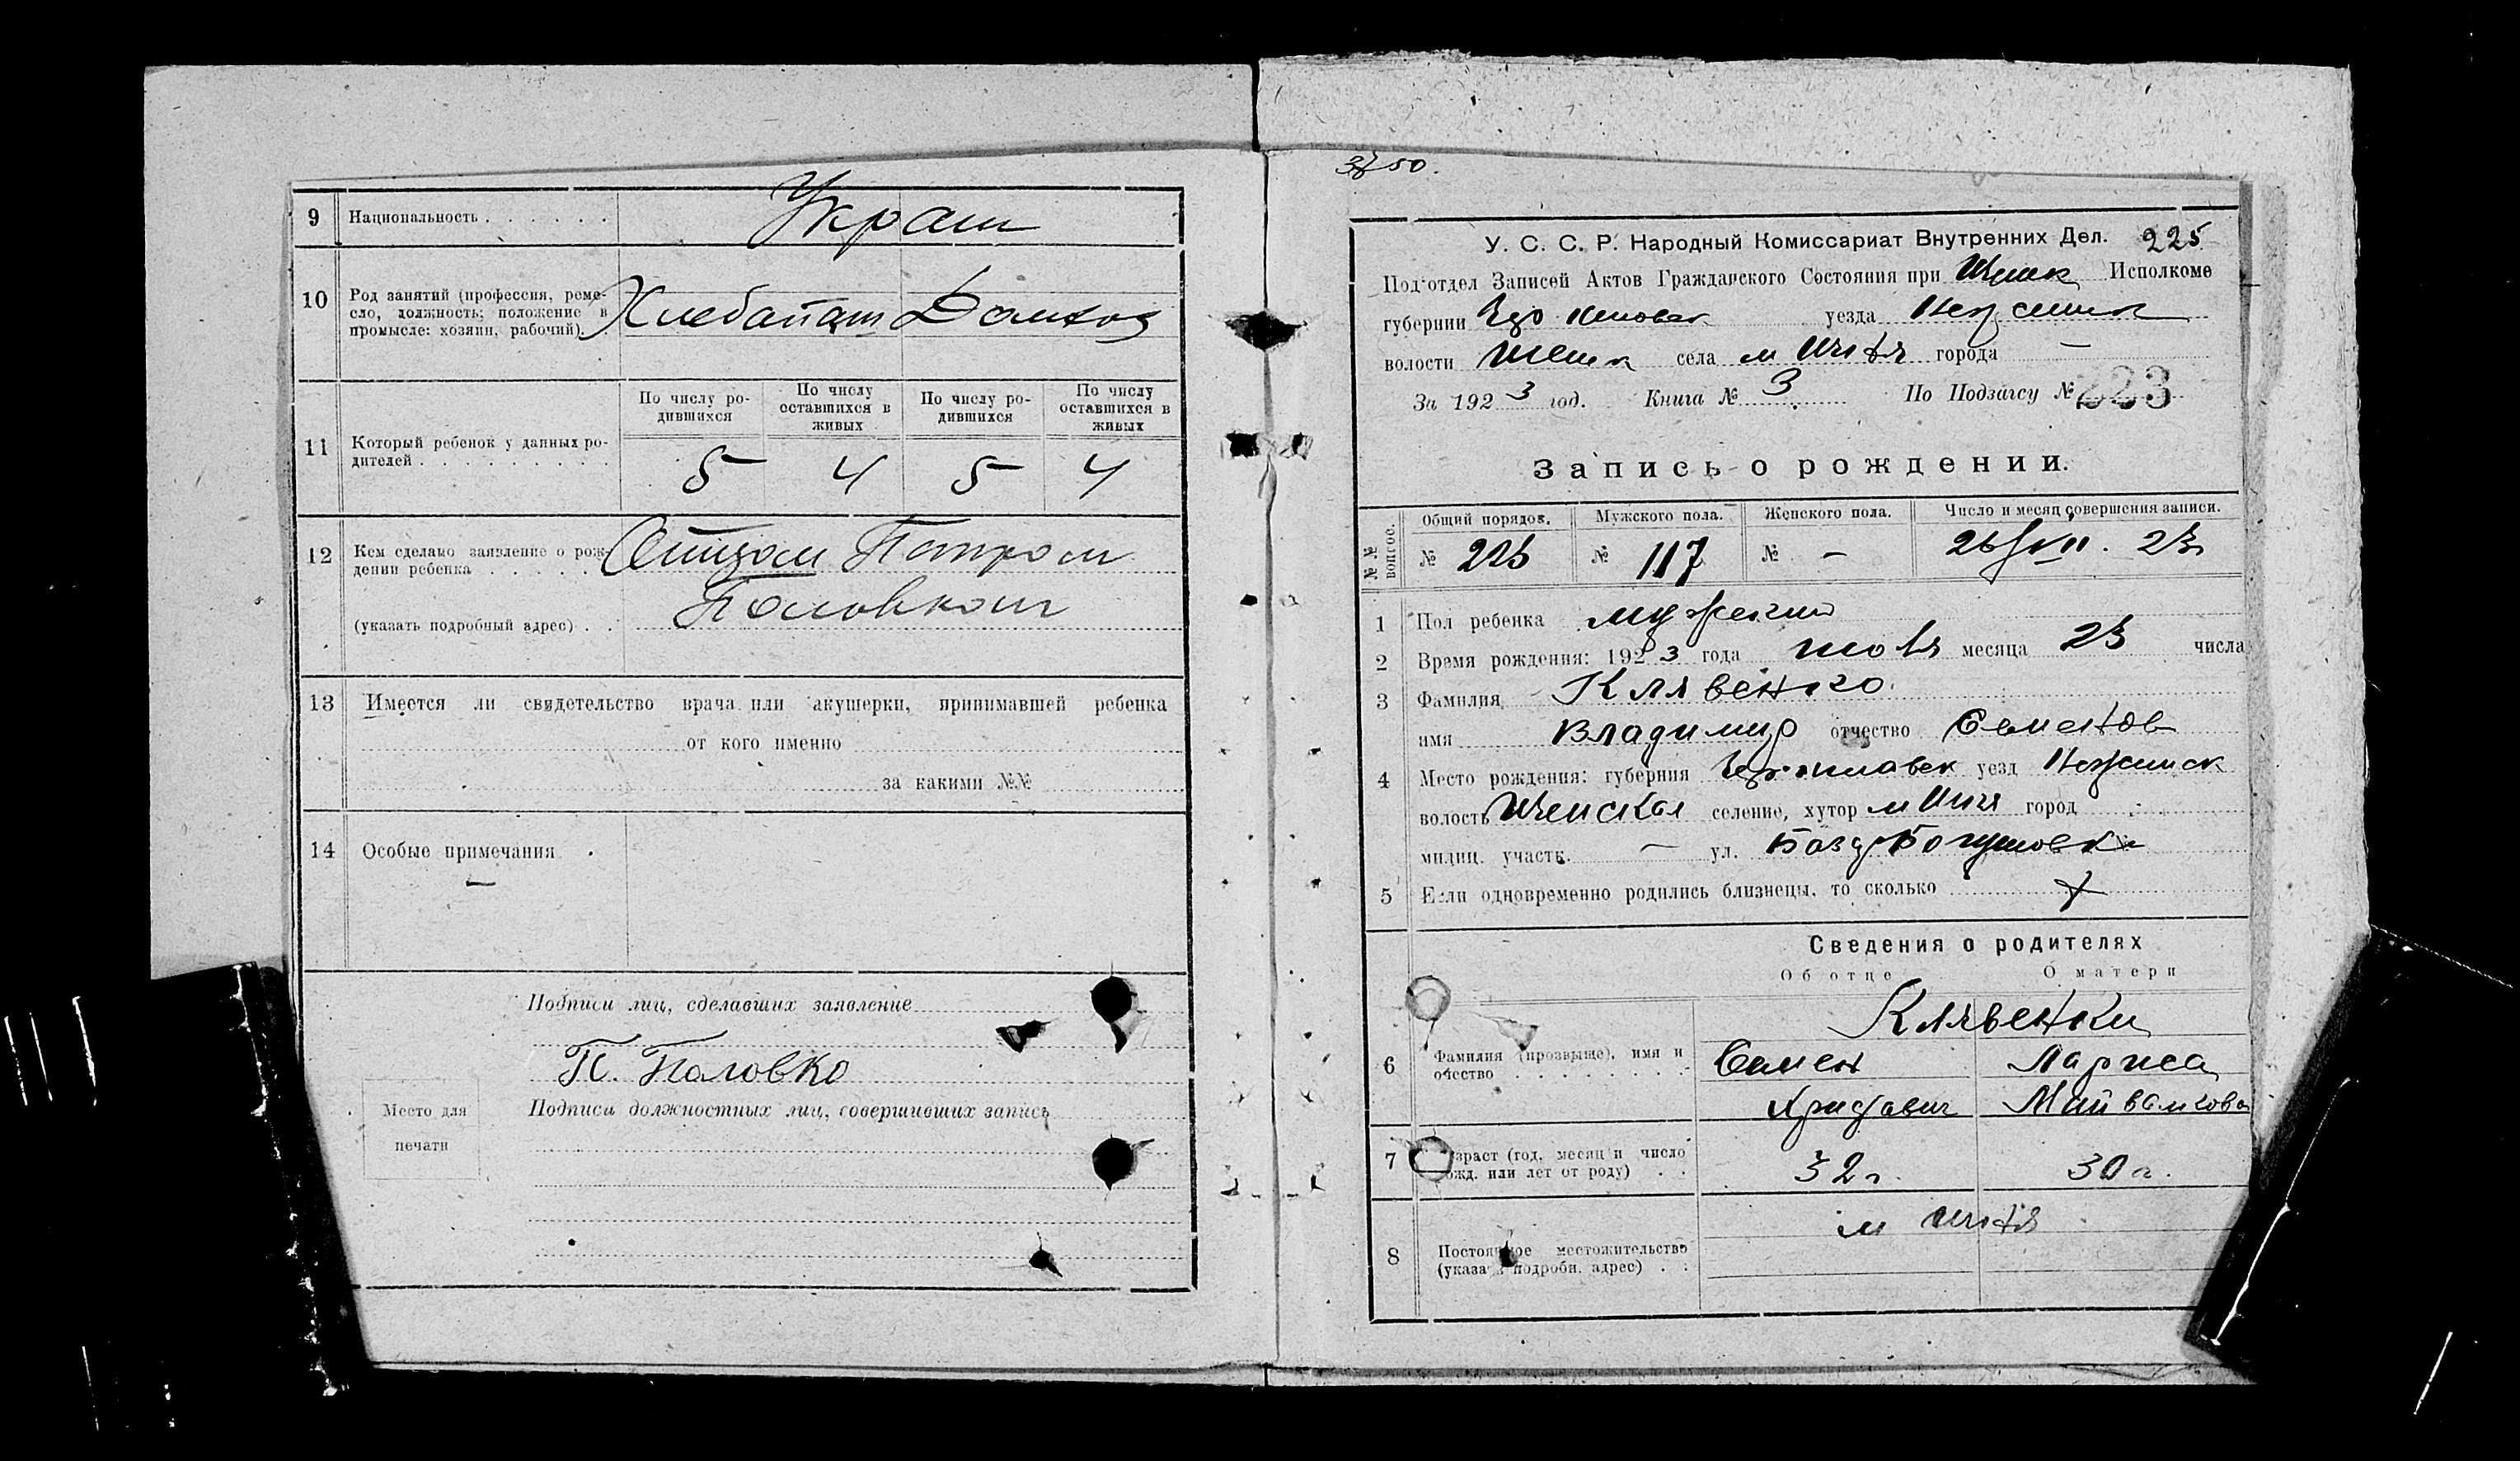 9 Национальность . . . . . . Украин
10 Род занятий (профессия, реме-
сло, должность; положение в
промысле: хозяин, рабочий). . Хлебопаш Домохоз
11 Который ребенок у данных ро-
дителей . . . . . . . . .
По числу ро-
дившихся
По числу
оставшихся в
живых
По числу ро-
дившихся
По числу
оставшихся в
живых
5 4 5 4
12 Кем сделано заявление о рож-
дении ребенка . . . . . Отцом Петром
Половком
(указать подробный адрес) . .
13 Имеется ли свидетельство врача или акушерки, принимавшей ребенка
от кого именно
за какими №№
14 Особые примечания .
—
Подписи лиц, сделавших заявление
П. Половко
Подписи должностных лиц, совершивших запись
Место для
печати
У. С. С. Р. Народный Комиссариат Внутренних Дел. 225
Подотдел Записей Актов Гражданского Состояния при Исполкоме
губернии уезда Нежинск
волости села м Ичня города —
За 1923 год. Книга № 3. По Подзагсу № 223
Запись о рождении.
№№ вопрос.
Общий порядов. Мужского пола. Женского пола. Число и месяц совершения записи.
№ 225 № 117 № — 26/VII. 23
1 Пол ребенка мужеский
2 Время рождения: 1923 года июля месяца 23 числа
3 Фамилия Клявенко
имя Владимир отчество Семенов
4 Место рождения: губерния уезд Нежинск
волость Иченская селение, хутор м Ичня город
милиц. участк. — ул.
5 Если одновременно родились близнецы, то сколько
Сведения о родителях
Об отце О матери
Клявенки
6 Фамилия (прозвище), имя и
очество . . . . . . . . .
Семен Лариса
7 Возраст (год, месяц и число
рожд. или лет от роду) . . 32 г. 30 л.
м Ичня
8 Постоянное местожительство
(указать подробн. адрес) . .